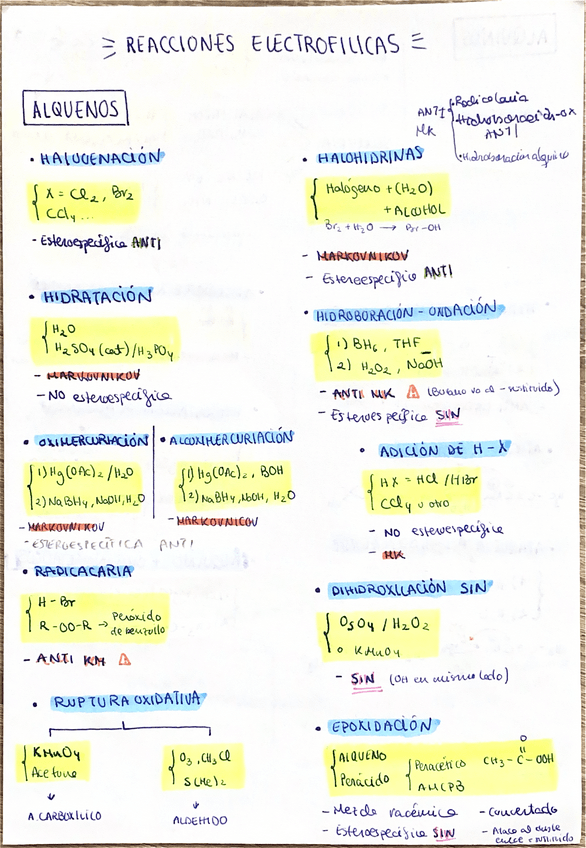 REACCIONES ELECTROFILICAS
ALQUENOS
ANTI
MK
Radicalaria
Hidroboración-OX
ANTI
Hidroboración alquino
• HALOGENACIÓN
X = Cl2, Br2
CCl4 ...
- Estereoespecífica ANTI
• HIDRATACIÓN
H2O
H2SO4 (cat)/H3PO4
- MARKOVNIKOV
- NO estereoespecífica
• OXIMERCURIACIÓN
1) Hg(OAc)2/H2O
2) NaBH4, NaOH, H2O
- MARKOVNIKOV
- ESTEREOESPECÍFICA ANTI
• ALCOXIMERCURIACIÓN
1) Hg(OAc)2, ROH
2) NaBH4, NaOH, H2O
- MARKOVNICOV
• RADICACARIA
H-Br
R-OO-R → Peróxido
de benzoilo
- ANTI KM
• RUPTURA OXIDATIVA
KMnO4
Acetona
A. CARBOXÍLICO
O3, CH3Cl
S(Me)2
ALDEHIDO
• HALOHIDRINAS
Halógeno + (H2O)
+ ALCOHOL
Br2 + H2O → Br-OH
- MARKOVNIKOV
- Estereoespecífica ANTI
• HIDROBORACIÓN - OXIDACIÓN
1) BH6, THF
2) H2O2, NaOH
- ANTI MK (Butano va a - sustituido)
- Estereoespecífica SIN
• ADICIÓN DE H-X
HX = HCl/HBr
CCl4 u otro
- NO estereoespecífica
- MK
• DIHIDROXILACIÓN SIN
OsO4 / H2O2
o KMnO4
- SIN (OH en mismo lado)
• EPOXIDACIÓN
ALQUENO
Perácido
Peracético
AMCPB
O
CH3-C-OOH
- Mezcla racémica
- Estereoespecífica SIN
- Concertado
- Ataca al doble
enlace + sustituido